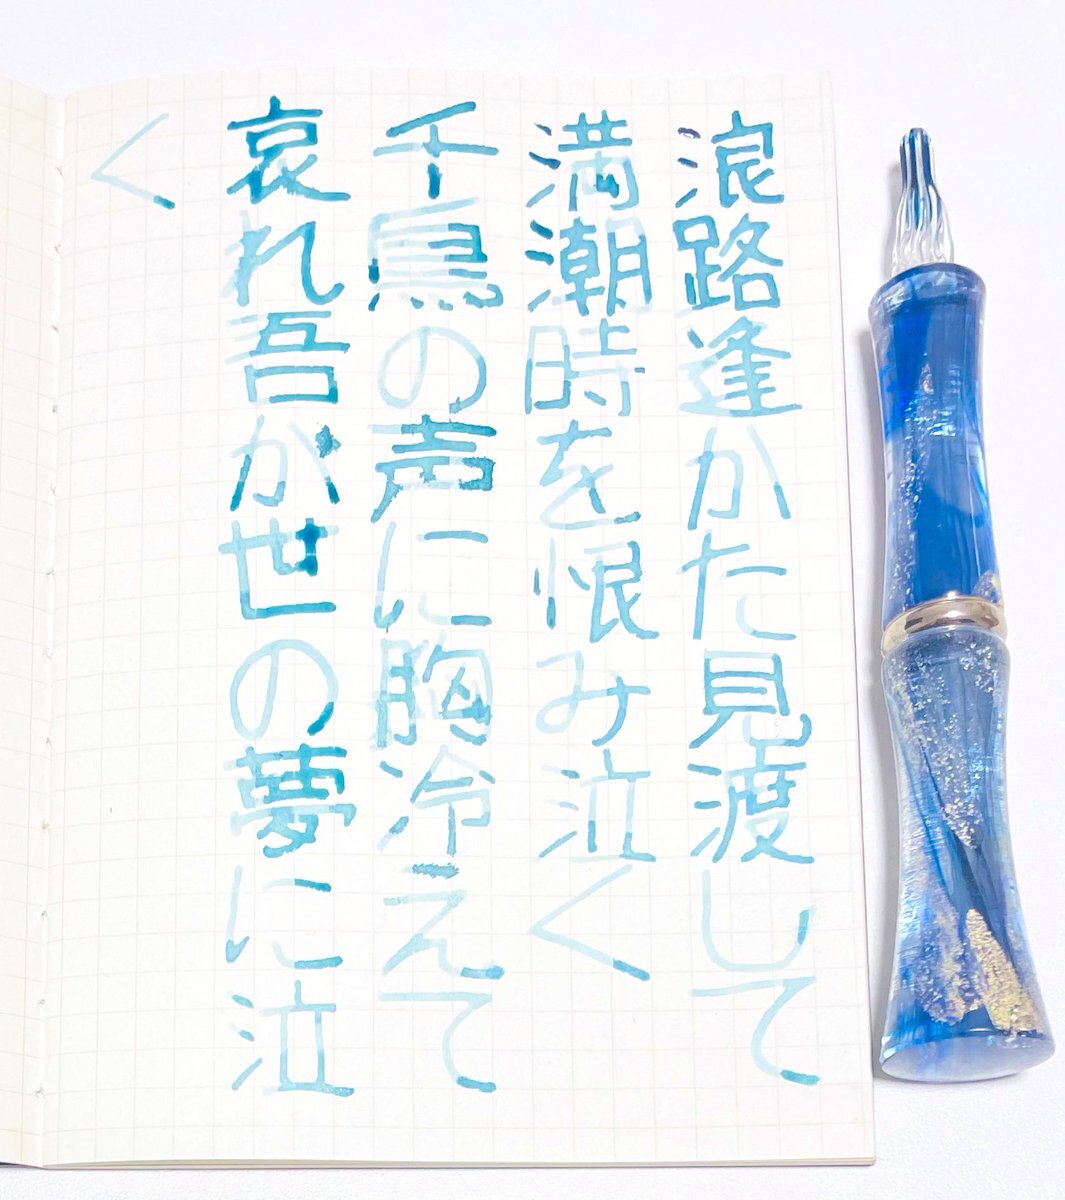 浪路逢かた見渡して
満潮時を恨み泣く
千鳥の声に胸冷えて
哀れ吾が世の夢に泣
く